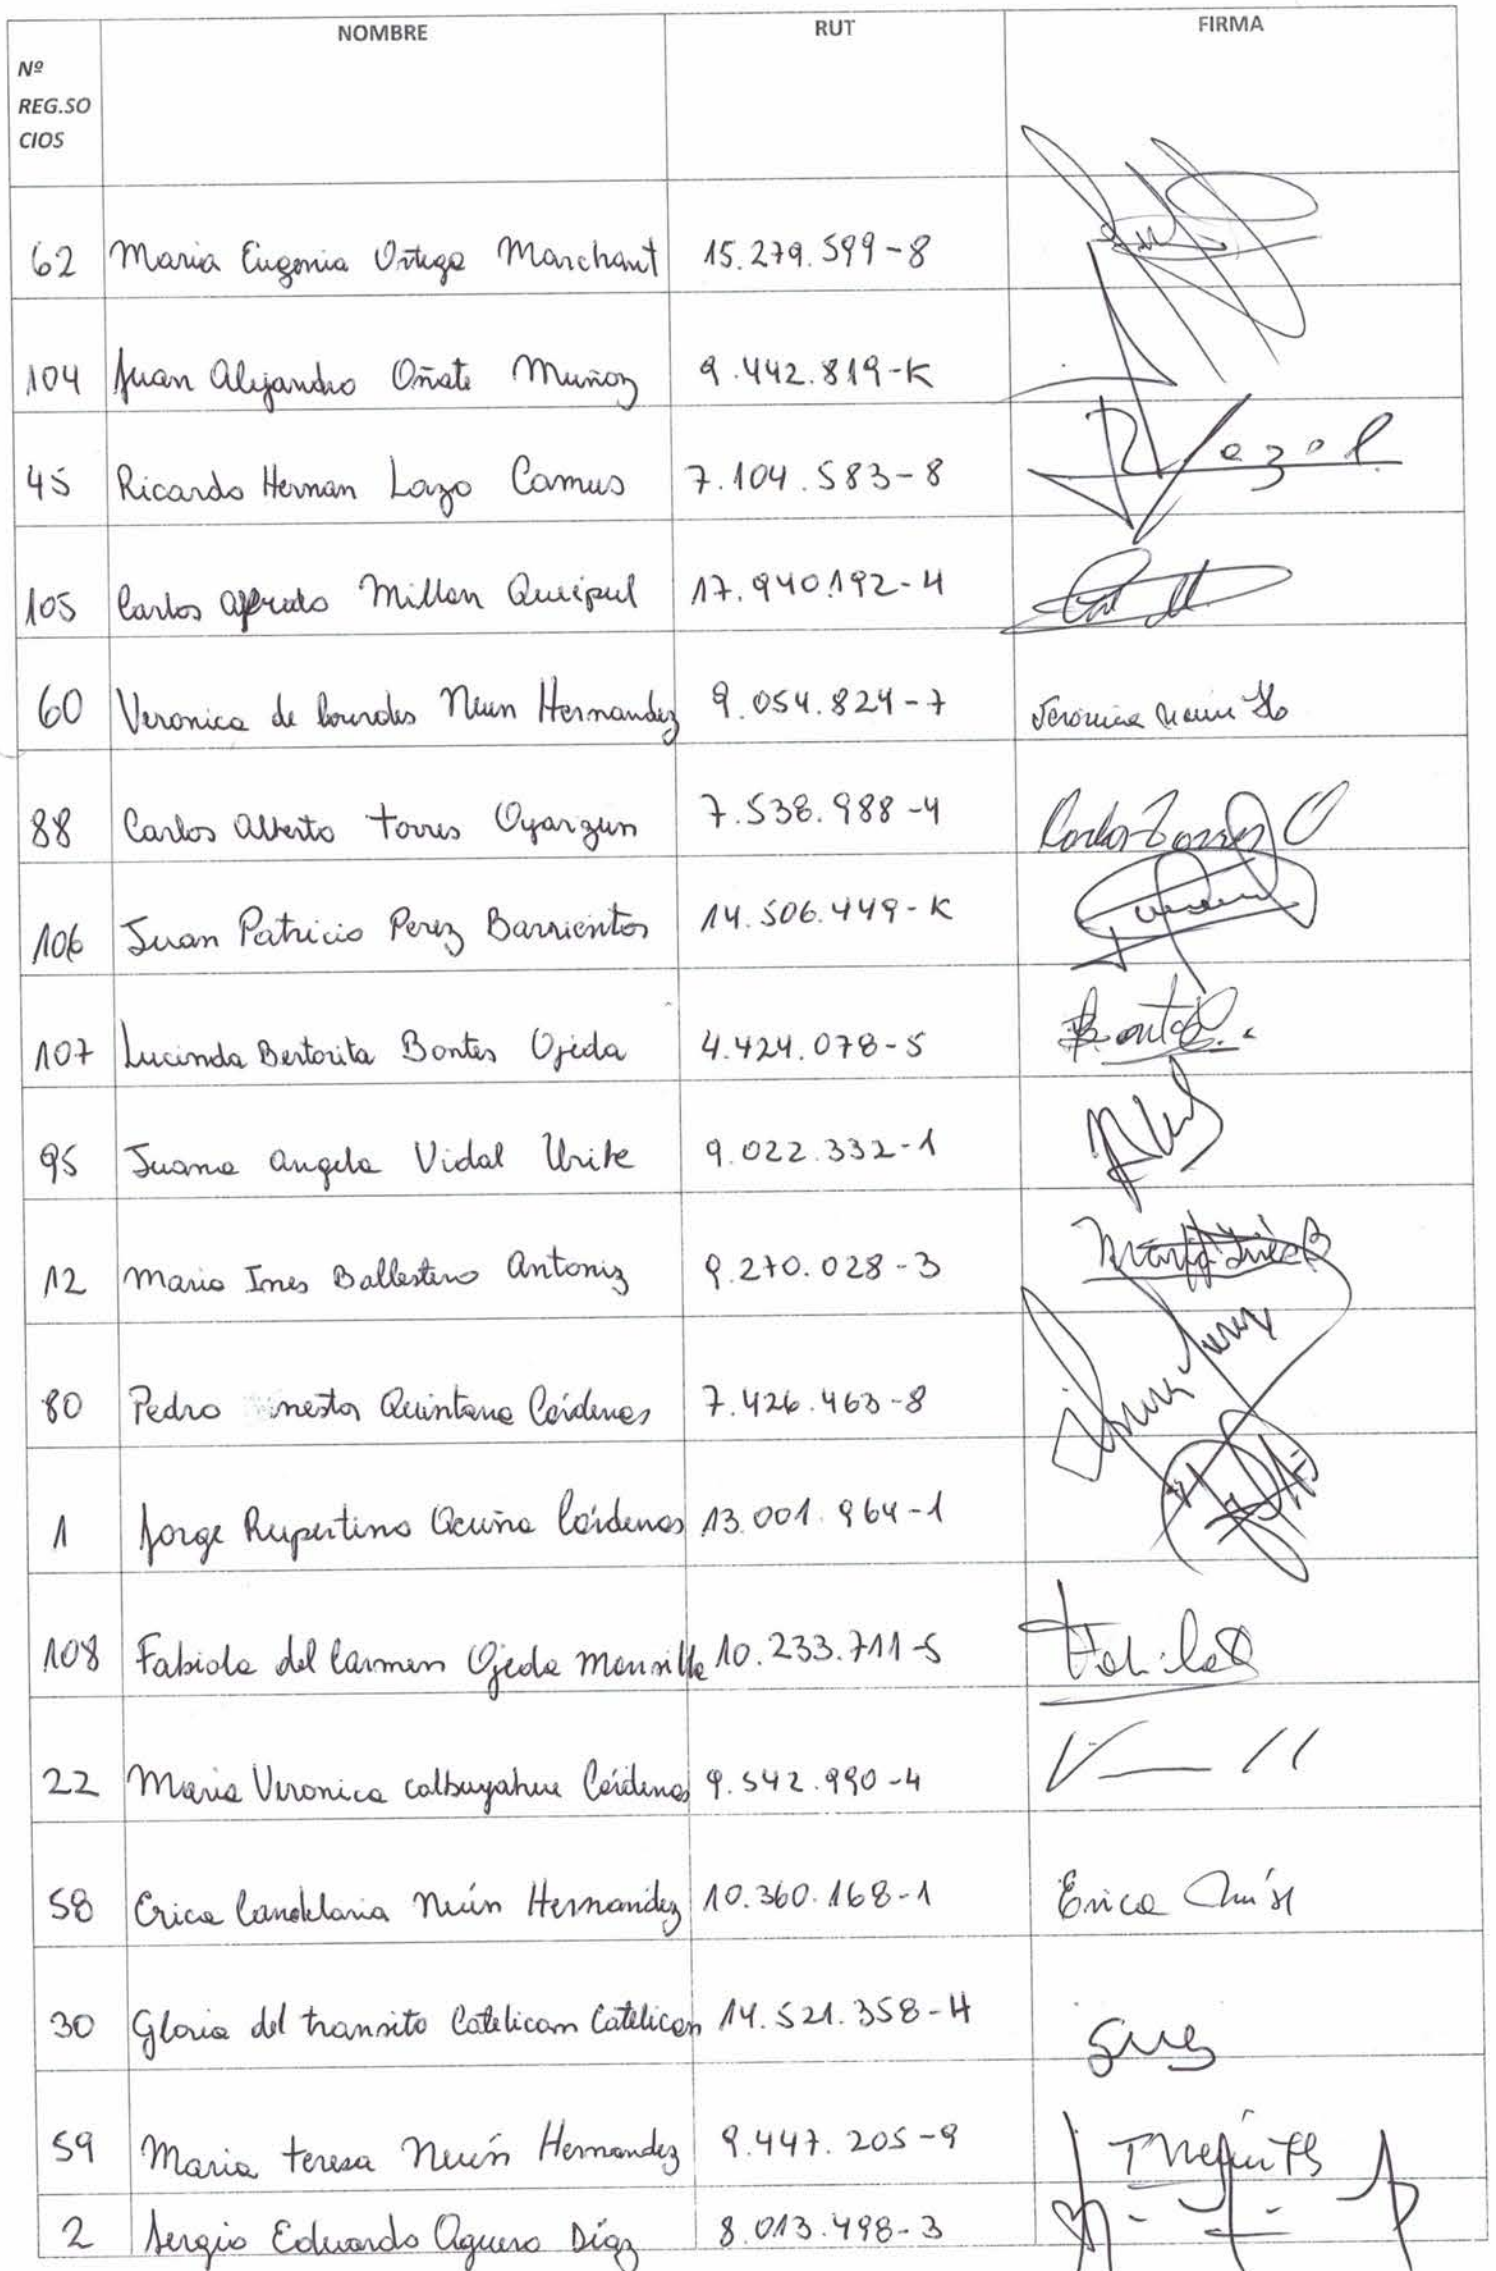 NOMBRE RUT FIRMA
Nº
REG.SO
CIOS
62 Maria Eugenia Ortega Marchant 15.279.599-8
104 Juan Alejandro Oñate Muñoz 9.442.819-K
45 Ricardo Hernan Lazo Camus 7.104.583-8
105 Carlos Alfredo Millan Queipul 17.940.192-4
60 Veronica de lourdes Neun Hernandez 9.054.824-7
88 Carlos Alberto torres Oyarzun 7.538.988-4 Carlos Torres O
106 Juan Patricio Perez Barrientos 14.506.449-K
107 Lucinda Bertorita Bontes Ojeda 4.424.078-5
95 Juana Angela Vidal Uribe 9.022.332-1
12 Maria Ines Ballestero Antoniz 9.270.028-3 Maria Inés B
80 Pedro nestor Quintana Cárdenas 7.426.463-8
1 Jorge Rupertino Acuña Cárdenas 13.001.964-1
108 Fabiola del Carmen Ojeda Mansilla 10.233.711-5
22 Maria Veronica Calbuyahue Cárdenas 9.542.990-4
58 Erica Candelaria Neún Hernandez 10.360.168-1 Erica
30 Gloria del transito Catelican Catelican 14.521.358-4
59 Maria teresa Neún Hernandez 9.447.205-9
2 Sergio Eduardo Aguero Díaz 8.013.498-3